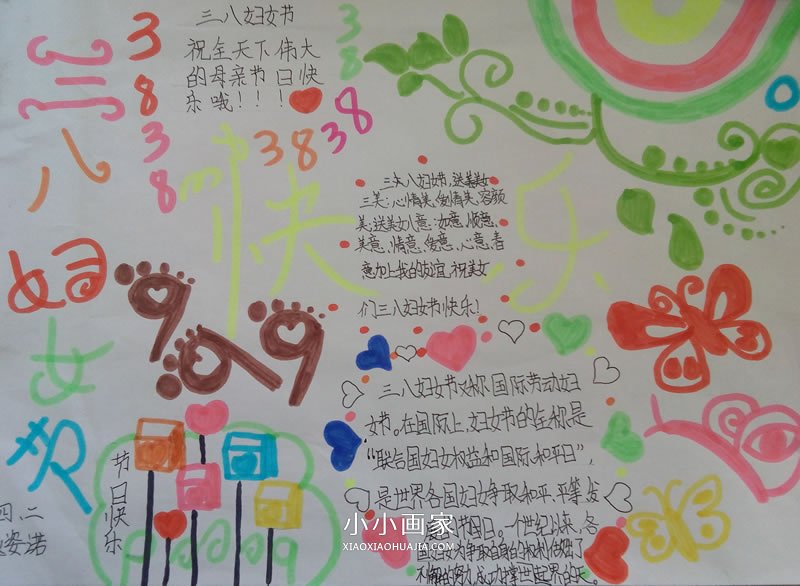 三八妇女节
祝全天下伟大
的母亲节日快
乐哦！！！
三
八
妇
女
节
3
8
3
8
38
38
38
快 乐
三八妇女节,送美女
三美:心情美、爱情美、容颜
美;送美女八意:如意、顺意、
美意、情意、爱意、心意、
意加上我的友谊,祝美女
们三八妇女节快乐!
三八妇女节又称国际劳动妇
女节。在国际上,妇女节的全称是
“联合国妇女权益和国际和平日”,
是世界各国妇女争取和平、平等、发
节日。一个世纪以来,各
争取自身的权利做出了
不懈的努力,成功撑世世界的天。
节日快乐
四、二
安诺
小小画家
XIAOXIAOHUAJIA.COM